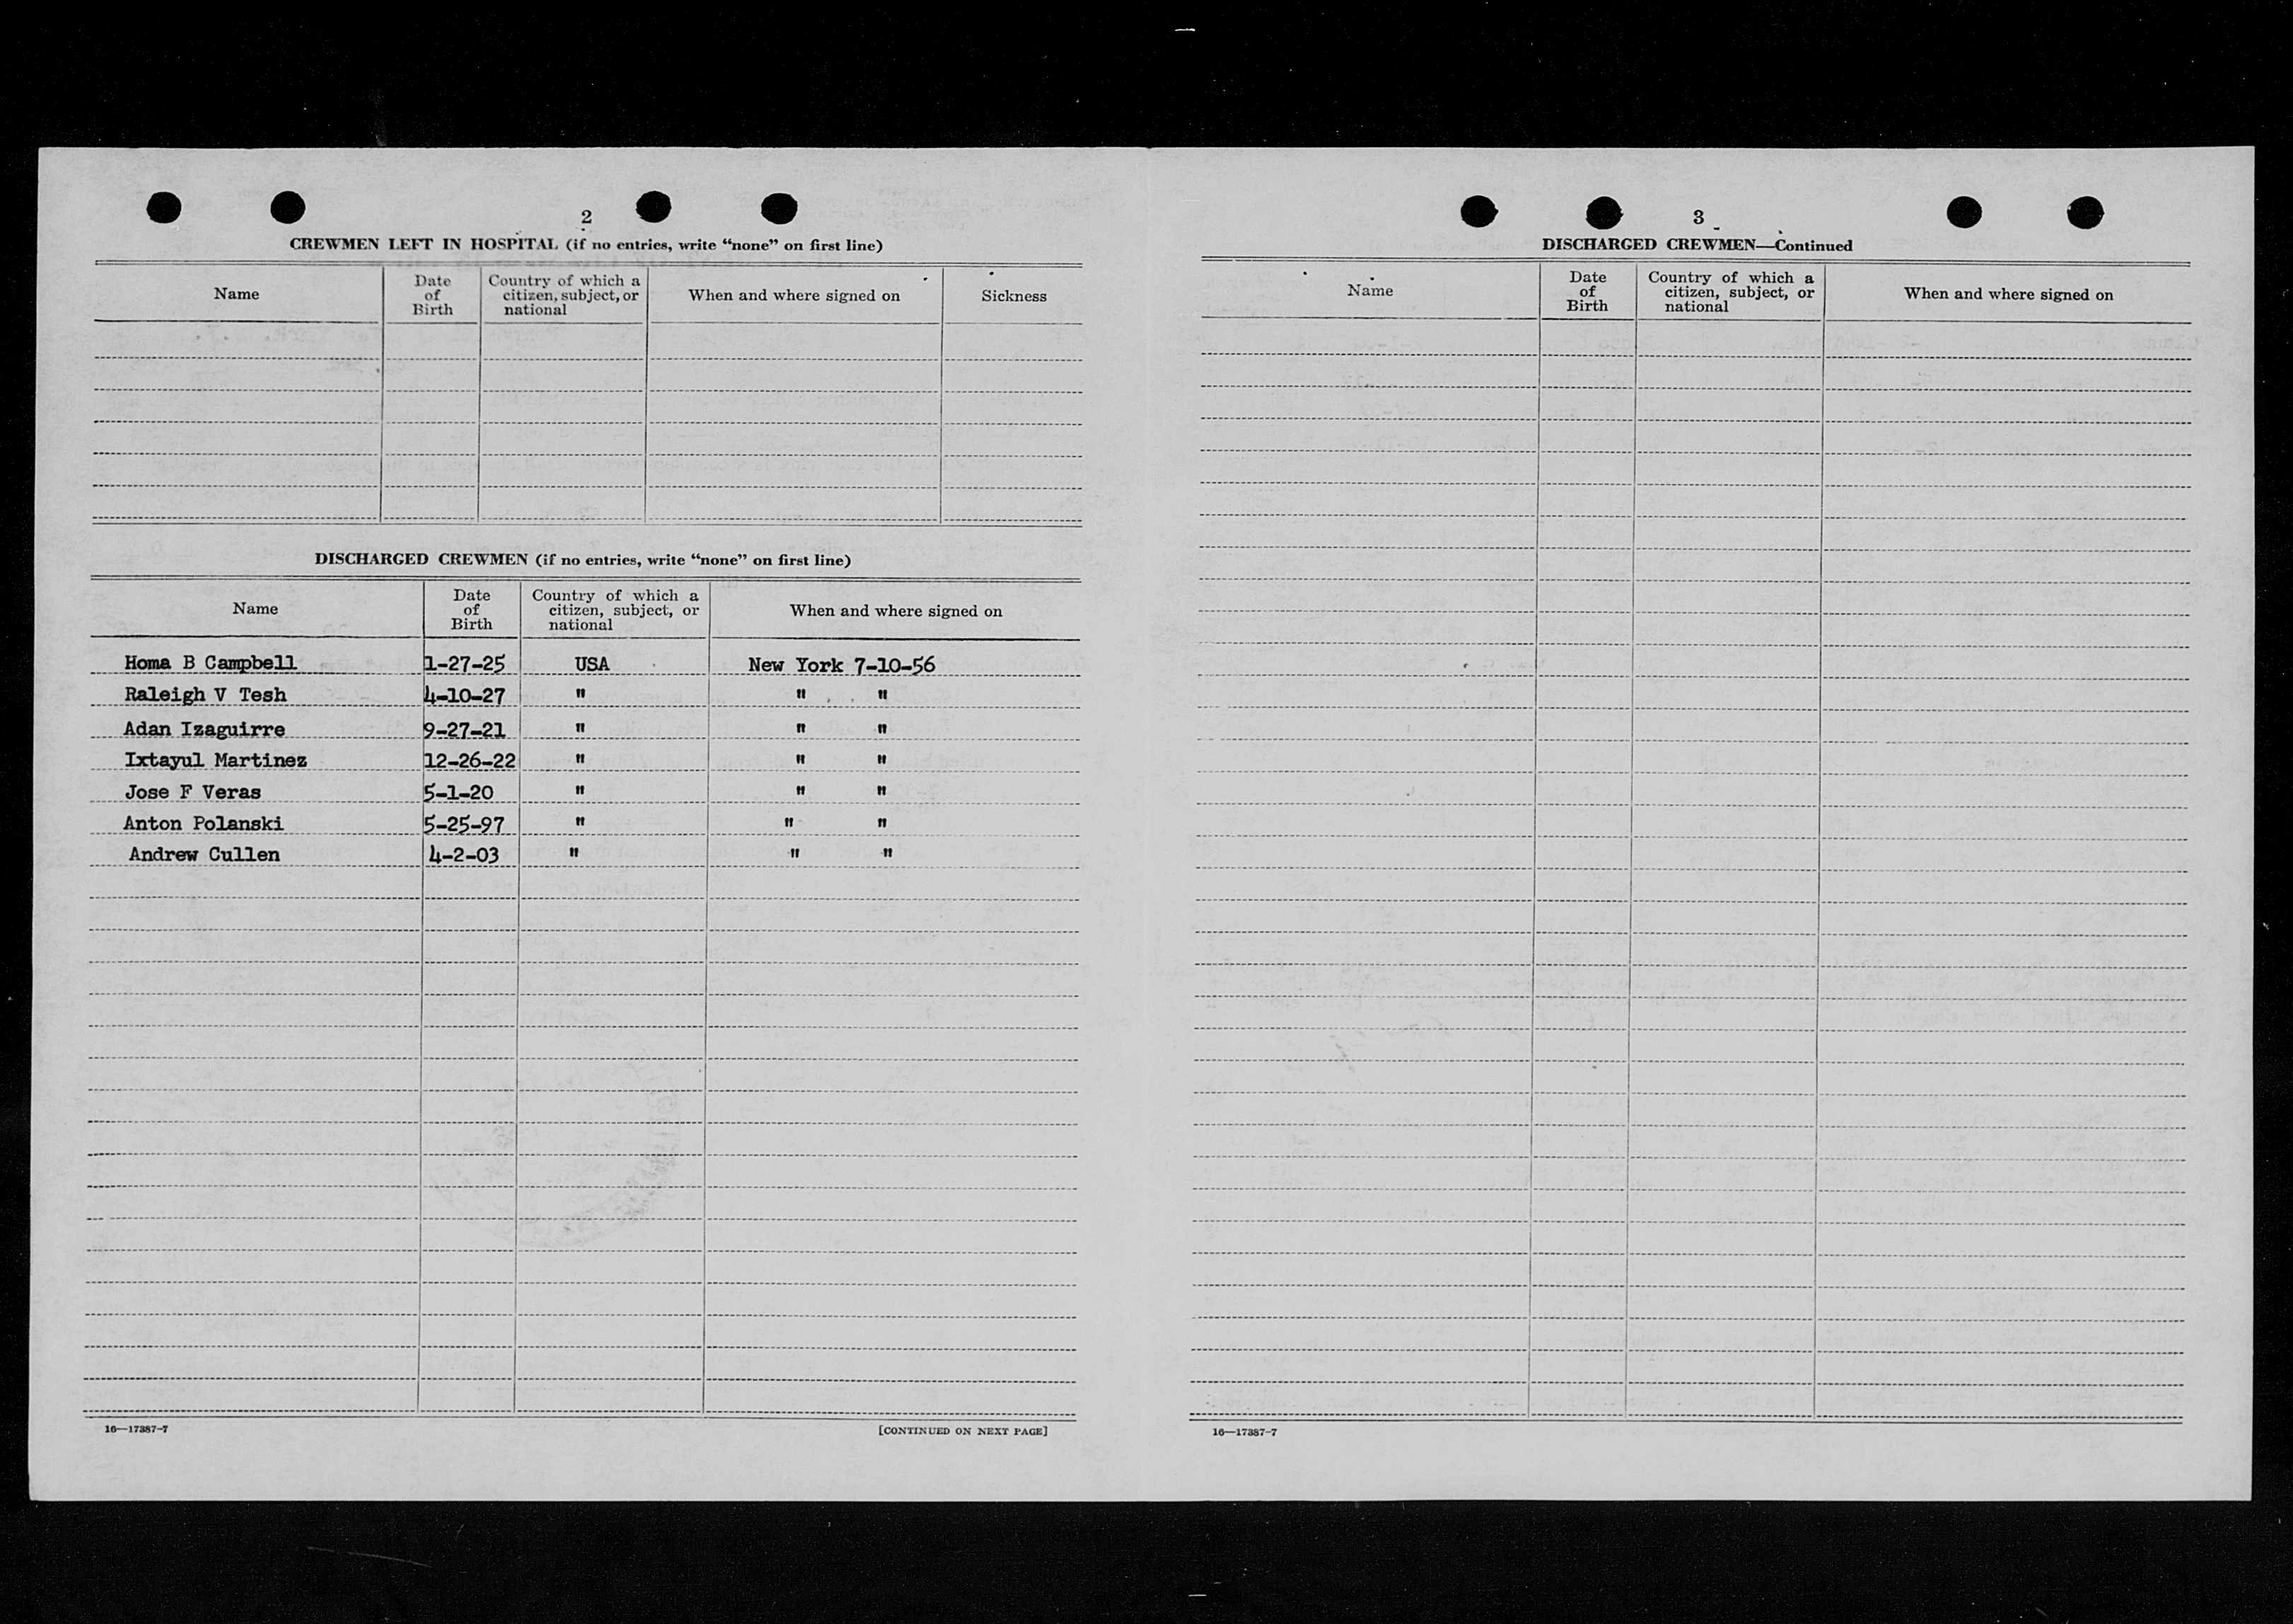 2
CREWMEN LEFT IN HOSPITAL (if no entries, write “none” on first line)
Name
Date of Birth
Country of which a citizen, subject, or national
When and where signed on
Sickness
DISCHARGED CREWMEN (if no entries, write “none” on first line)
Name
Date of Birth
Country of which a citizen, subject, or national
When and where signed on
Homa B Campbell 1-27-25 USA New York 7-10-56
Raleigh V Tesh 4-10-27 " " "
Adan Izaguirre 9-27-21 " " "
Ixtayul Martinez 12-26-22 " " "
Jose F Veras 5-1-20 " " "
Anton Polanski 5-25-97 " " "
Andrew Cullen 4-2-03 " " "
16—17387-7 [CONTINUED ON NEXT PAGE]
3
DISCHARGED CREWMEN—Continued
Name
Date of Birth
Country of which a citizen, subject, or national
When and where signed on
16—17387-7